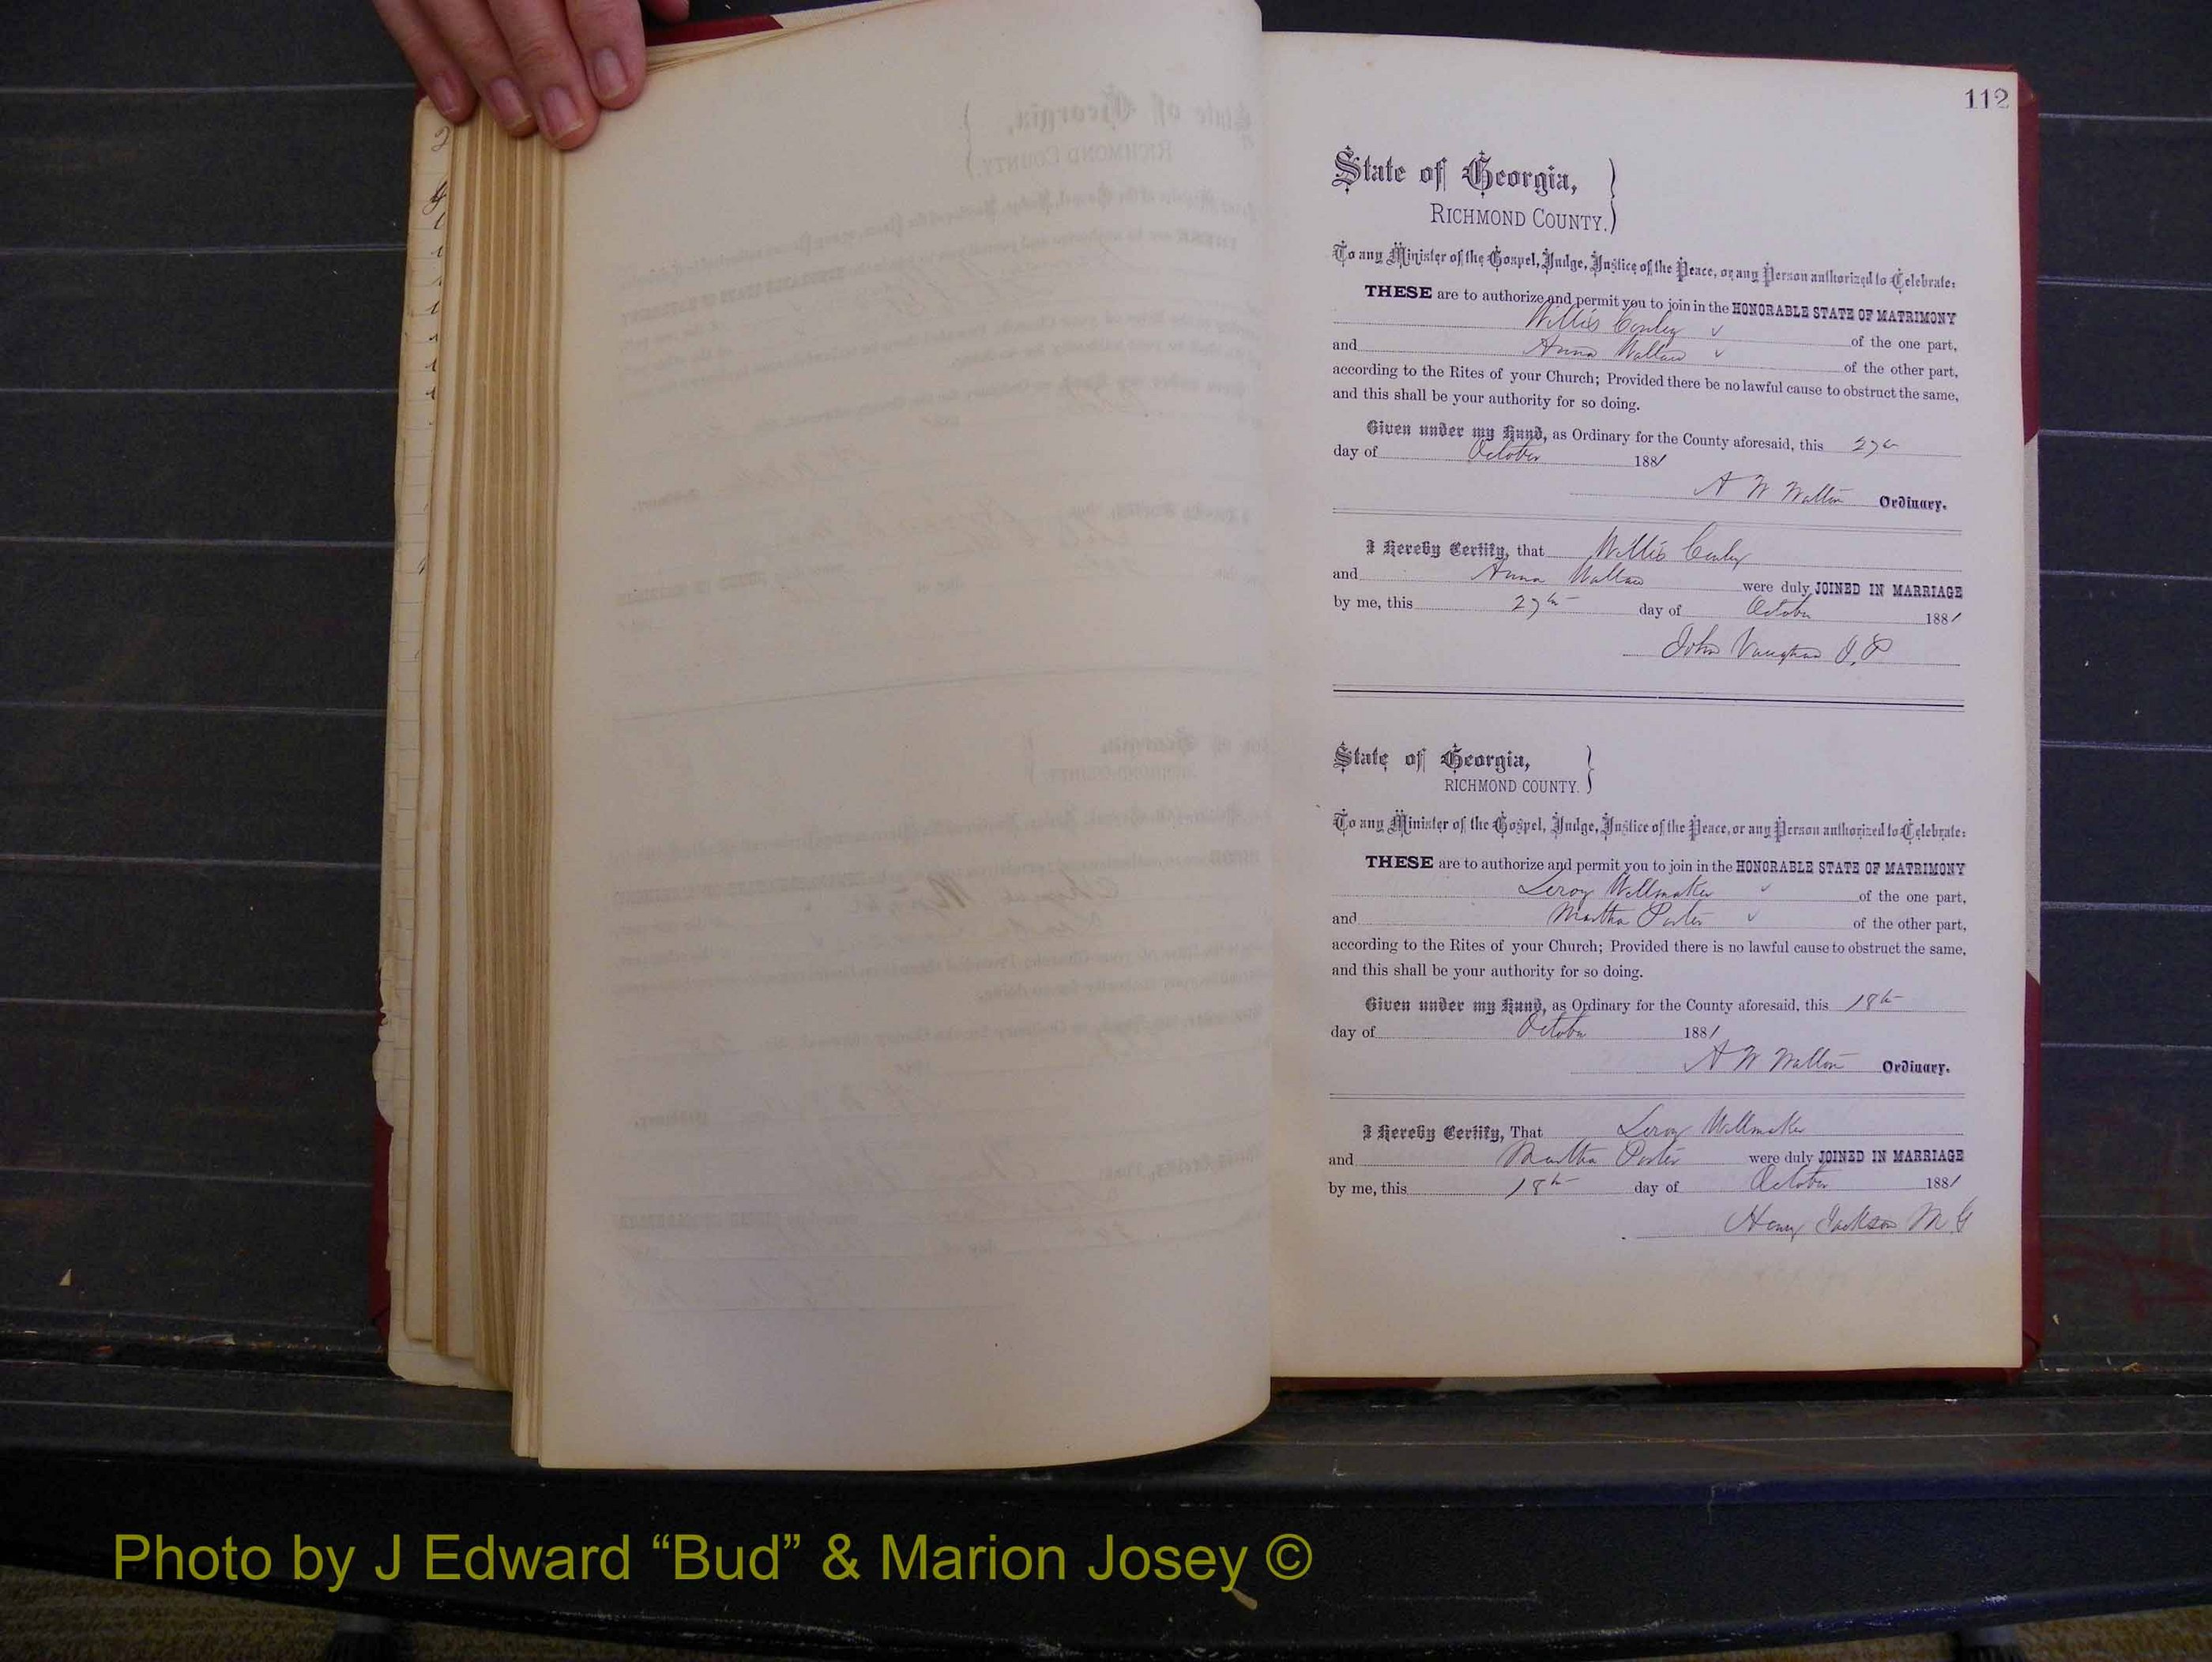 112
State of Georgia,
RICHMOND COUNTY.
To any Minister of the Gospel, Judge, Justice of the Peace, or any Person authorized to Celebrate:
THESE are to authorize and permit you to join in the HONORABLE STATE OF MATRIMONY
Willis Conley of the one part,
and Anna Wallace of the other part,
according to the Rites of your Church; Provided there be no lawful cause to obstruct the same,
and this shall be your authority for so doing.
Given under my Hand, as Ordinary for the County aforesaid, this 27th
day of October 1881
A W Walton Ordinary.
I Hereby Certify, that Willis Conley
and Anna Wallace were duly JOINED IN MARRIAGE
by me, this 27th day of October 1881
John Vaughan J.P
State of Georgia,
RICHMOND COUNTY.
To any Minister of the Gospel, Judge, Justice of the Peace, or any Person authorized to Celebrate:
THESE are to authorize and permit you to join in the HONORABLE STATE OF MATRIMONY
Leroy Wellmaker of the one part,
and Martha Porter of the other part,
according to the Rites of your Church; Provided there is no lawful cause to obstruct the same,
and this shall be your authority for so doing.
Given under my Hand, as Ordinary for the County aforesaid, this 18th
day of October 1881
A W Walton Ordinary.
I Hereby Certify, That Leroy Wellmaker
and Martha Porter were duly JOINED IN MARRIAGE
by me, this 18th day of October 1881
Henry Jackson M.G
Photo by J Edward “Bud” & Marion Josey ©